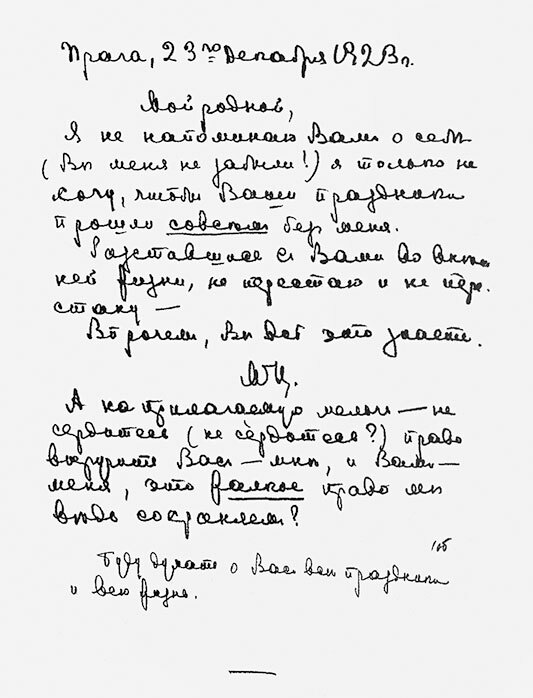 Прага, 23го декабря 1923 г.
Мой родной,
Я не напоминаю Вамъ о себѣ
(Вы меня не забыли!) я только не
хочу, чтобы Ваши праздники
прошли совсѣмъ безъ меня.
Разставшись съ Вами во внѣш-
ней жизни, не перестаю и не пере-
стану —
Впрочемъ, Вы всё это знаете.
МЦ.
А на прилагаемую мелочь — не
сердитесь (не сéрдитесь?) право
выручить Васъ — мнѣ, и Вамъ —
меня, это жалкое право мы
вѣдь сохраняемъ?
Буду думать о Васъ всѣ праздники
и всю жизнь.